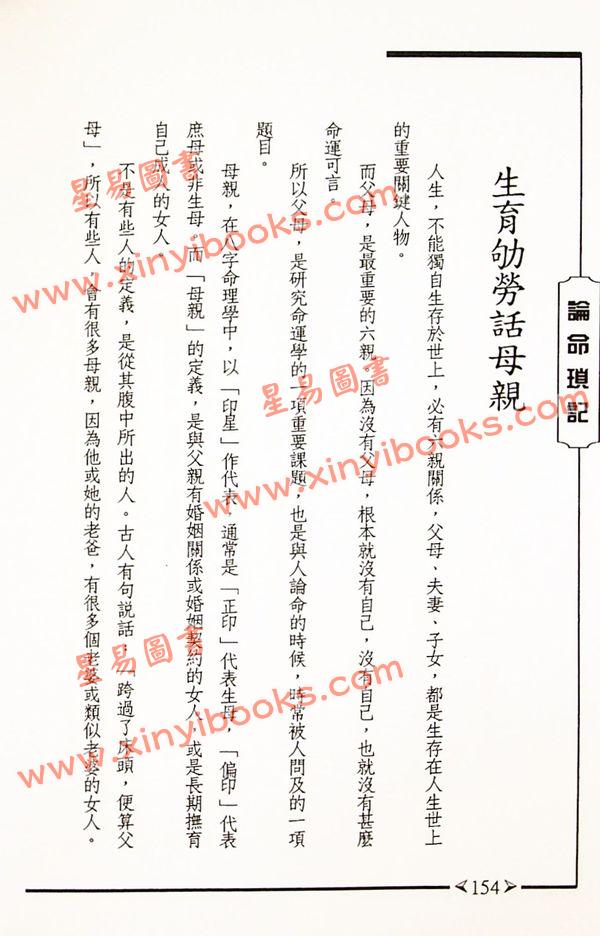 論命瑣記
生育劬勞話母親
人生，不能獨自生存於世上，必有六親關係，父母、夫妻、子女，都是生存在人生世上
的重要關鍵人物。
而父母，是最重要的六親。因為沒有父母，根本就沒有自己，沒有自己，也就沒有甚麼
命運可言。
所以父母，是研究命運學的一項重要課題，也是與人論命的時候，時常被人問及的一項
題目。
母親，在八字命理學中，以「印星」作代表，通常是「正印」代表生母，「偏印」代表
庶母或非生母。而「母親」的定義，是與父親有婚姻關係或婚姻契約的女人，或是長期撫育
自己成人的女人。
不是有些人的定義，是從其腹中所出的人。古人有句說話：「跨過了床頭，便算父
母」，所以有些人，會有很多母親，因為他或她的老爸，有很多個老婆或類似老婆的女人。
154
星易圖書
www.xinyibooks.com
星易圖書
www.xinyibooks.com
星易圖書
www.xinyibooks.com